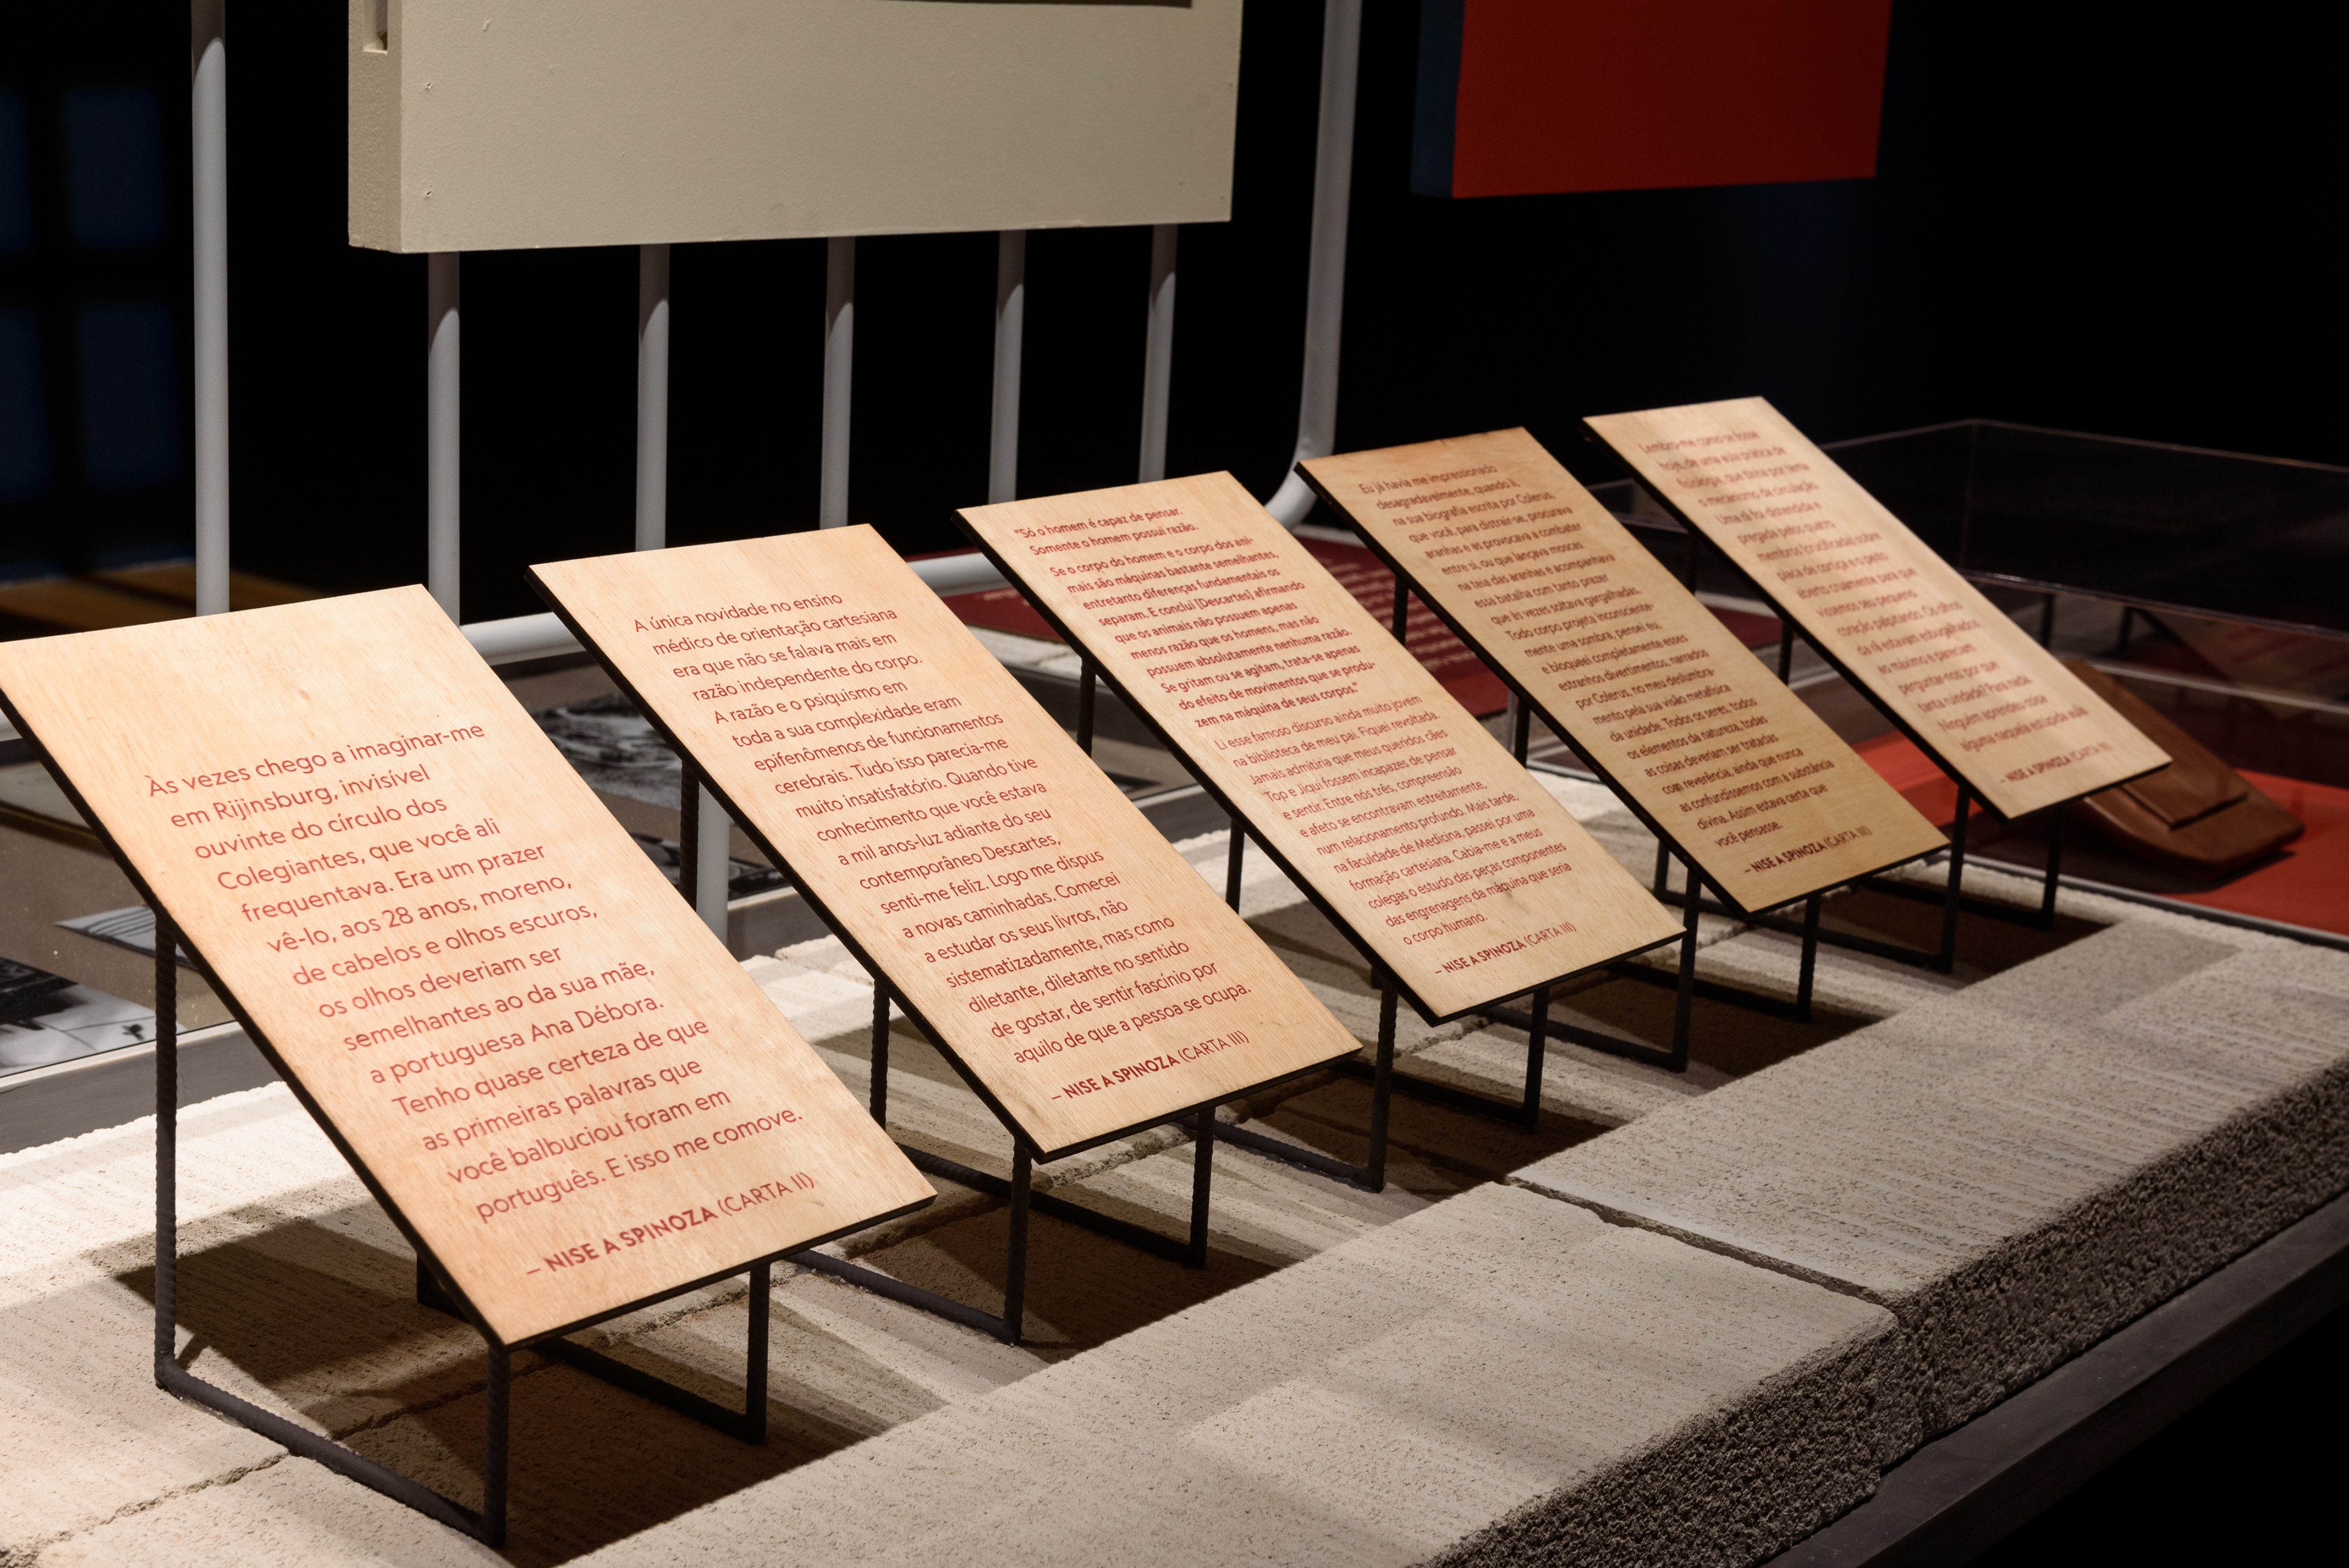 Às vezes chego a imaginar-me
em Rijinsburg, invisível
ouvinte do círculo dos
Colegiantes, que você ali
frequentava. Era um prazer
vê-lo, aos 28 anos, moreno,
de cabelos e olhos escuros,
os olhos deveriam ser
semelhantes ao da sua mãe,
a portuguesa Ana Débora.
Tenho quase certeza de que
as primeiras palavras que
você balbuciou foram em
português. E isso me comove.
– NISE A SPINOZA (CARTA II)
A única novidade no ensino
médico de orientação cartesiana
era que não se falava mais em
razão independente do corpo.
A razão e o psiquismo em
toda a sua complexidade eram
epifenômenos de funcionamentos
cerebrais. Tudo isso parecia-me
muito insatisfatório. Quando tive
conhecimento que você estava
a mil anos-luz adiante do seu
contemporâneo Descartes,
senti-me feliz. Logo me dispus
a novas caminhadas. Comecei
a estudar os seus livros, não
sistematizadamente, mas como
diletante, diletante no sentido
de gostar, de sentir fascínio por
aquilo de que a pessoa se ocupa.
– NISE A SPINOZA (CARTA III)
"Só o homem é capaz de pensar.
Somente o homem possui razão.
Se o corpo do homem e o corpo dos ani-
mais são máquinas bastante semelhantes,
entretanto diferenças fundamentais os
separam. E conclui [Descartes] afirmando
que os animais não possuem apenas
menos razão que os homens, mas não
possuem absolutamente nenhuma razão.
Se gritam ou se agitam, trata-se apenas
do efeito de movimentos que se produ-
zem na máquina de seus corpos."
Li esse famoso discurso ainda muito jovem
na biblioteca de meu pai. Fiquei revoltada.
Jamais admitiria que meus queridos cães
Top e Jiqui fossem incapazes de pensar
e sentir. Entre nós três, compreensão
e afeto se encontravam estreitamente,
num relacionamento profundo. Mais tarde,
na faculdade de Medicina, passei por uma
formação cartesiana. Cabia-me e a meus
colegas o estudo das peças componentes
das engrenagens da máquina que seria
o corpo humano.
– NISE A SPINOZA (CARTA III)
Eu já havia me impressionado
desagradavelmente, quando li,
na sua biografia escrita por Colerus,
que você, para distrair-se, procurava
aranhas e as provocava a combater
entre si, ou que lançava moscas
na teia das aranhas e acompanhava
essa batalha com tanto prazer
que às vezes soltava gargalhadas.
Todo corpo projeta inconsciente-
mente uma sombra, pensei eu,
e bloqueei completamente esses
estranhos divertimentos, narrados
por Colerus, no meu deslumbra-
mento pela sua visão metafísica
da unidade. Todos os seres, todos
os elementos da natureza, todas
as coisas deveriam ser tratadas
com reverência, ainda que nunca
as confundíssemos com a substância
divina. Assim estava certa que
você pensasse.
– NISE A SPINOZA (CARTA III)
Lembro-me como se fosse
hoje, de uma aula prática de
fisiologia, que tinha por tema
o mecanismo da circulação.
Uma rã foi distendida e
pregada pelos quatro
membros (crucificada) sobre
placa de cortiça e o peito
aberto cruamente para que
víssemos seu pequeno
coração palpitando. Os olhos
da rã estavam esbugalhados
ao máximo e pareciam
perguntar-nos por que
tanta ruindade? Para nada.
Ninguém aprendeu coisa
alguma naquela estúpida aula.
– NISE A SPINOZA (CARTA III)